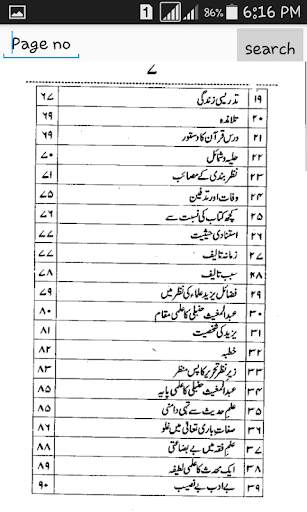 1 86% 6:16 PM
Page no search
7
۱۹ تدریسی زندگی ۶۷
۲۰ تلامذہ ۶۹
۲۱ درس قرآن کا دستور ۶۹
۲۲ حلیہ و شمائل ۷۰
۲۳ نظر بندی کے مصائب ۷۱
۲۴ وفات اور تدفین ۷۵
۲۵ کچھ کتاب کی نسبت سے ۷۶
۲۶ استنادی حیثیت ۷۷
۲۷ زمانہ تالیف ۷۷
۲۸ سبب تالیف ۷۸
۲۹ فضائل یزید علماء کی نظر میں ۷۹
۳۰ عبدالمغیث حنبلی کا علمی مقام ۸۰
۳۱ یزید کی شخصیت ۸۱
۳۲ خطبہ ۸۲
۳۳ زیر نظر تحریر کا پس منظر ۸۳
۳۴ عبدالمغیث حنبلی کا علمی پایہ ۸۵
۳۵ علم حدیث سے تہی دامنی ۸۵
۳۶ صفات باری تعالیٰ میں غلو ۸۶
۳۷ علم فقہ میں بے بضاعتی ۸۸
۳۸ ایک محدث کا علمی لطیفہ ۸۹
۳۹ بے ادب بے نصیب ۹۰